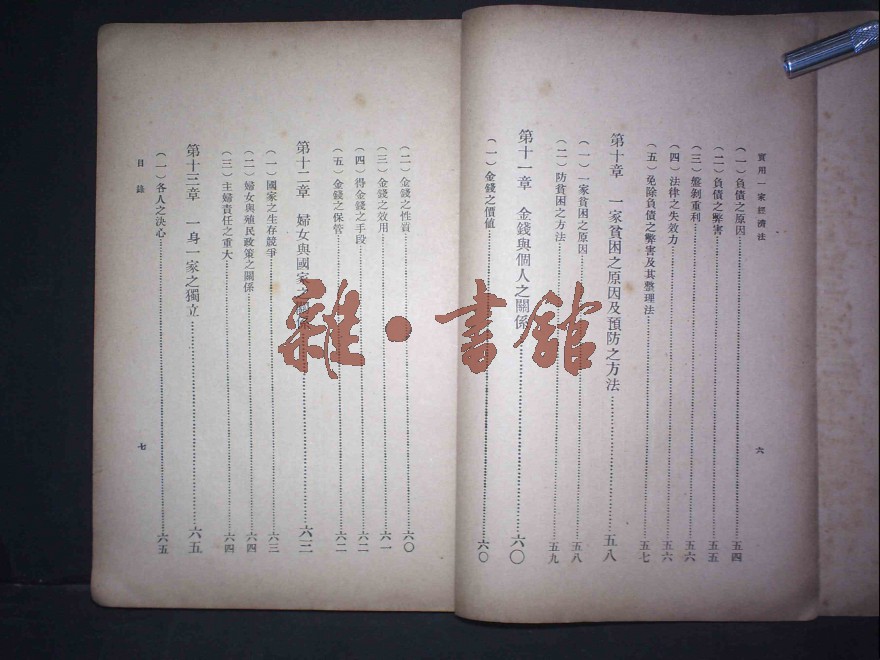 實用一家經濟法
六
(一)負債之原因……五四
(二)負債之弊害……五五
(三)盤剝重利……五六
(四)法律之失效力……五六
(五)免除負債之弊害及其整理法……五七
第十章 一家貧困之原因及預防之方法……五八
(一)一家貧困之原因……五八
(二)防貧困之方法……五九
第十一章 金錢與個人之關係……六〇
(一)金錢之價値……六〇
(二)金錢之性質……六〇
(三)金錢之效用……六一
(四)得金錢之手段……六二
(五)金錢之保管……六二
第十二章 婦女與國家之關係……六三
(一)國家之生存競爭……六三
(二)婦女與殖民政策之關係……六四
(三)主婦責任之重大……六四
第十三章 一身一家之獨立……六五
(一)各人之決心……六五
目錄
七
雜·書館